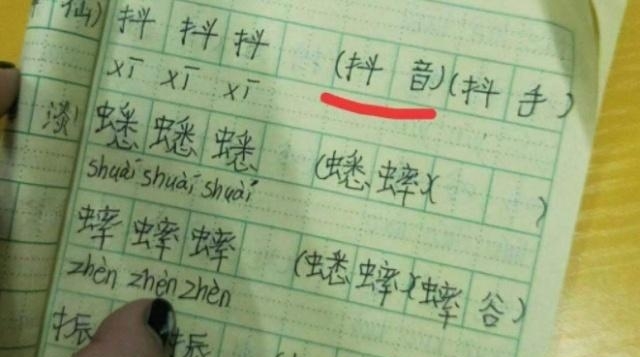 仙) 抖 抖 抖 (抖 音)(抖 手)
xī xī xī
淡) 蟋 蟋 蟋 (蟋 蟀)( )
shuài shuài shuài
蟀 蟀 蟀 (蟋 蟀)(蟀 谷)
zhèn zhèn zhèn
振 振